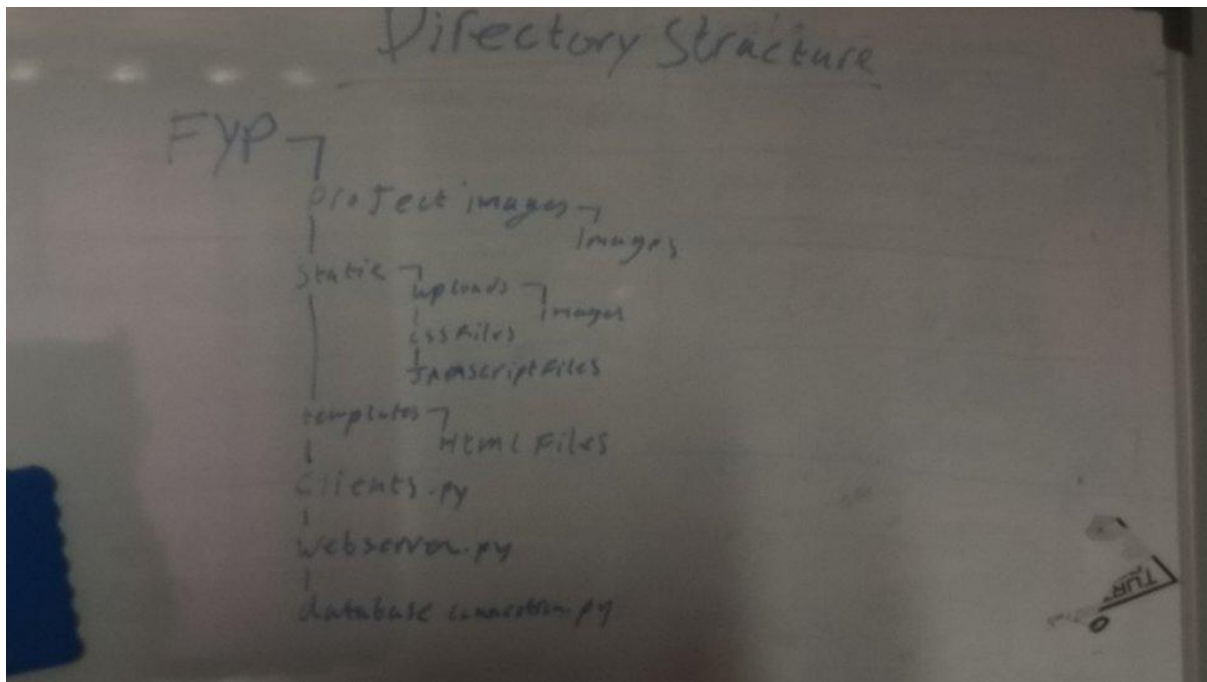 Directory Structure
FYP
Project images
Images
Static
uploads
images
CSS Files
JavascriptFiles
templates
Html Files
Clients.py
Webserver.py
database connection.py
TURN